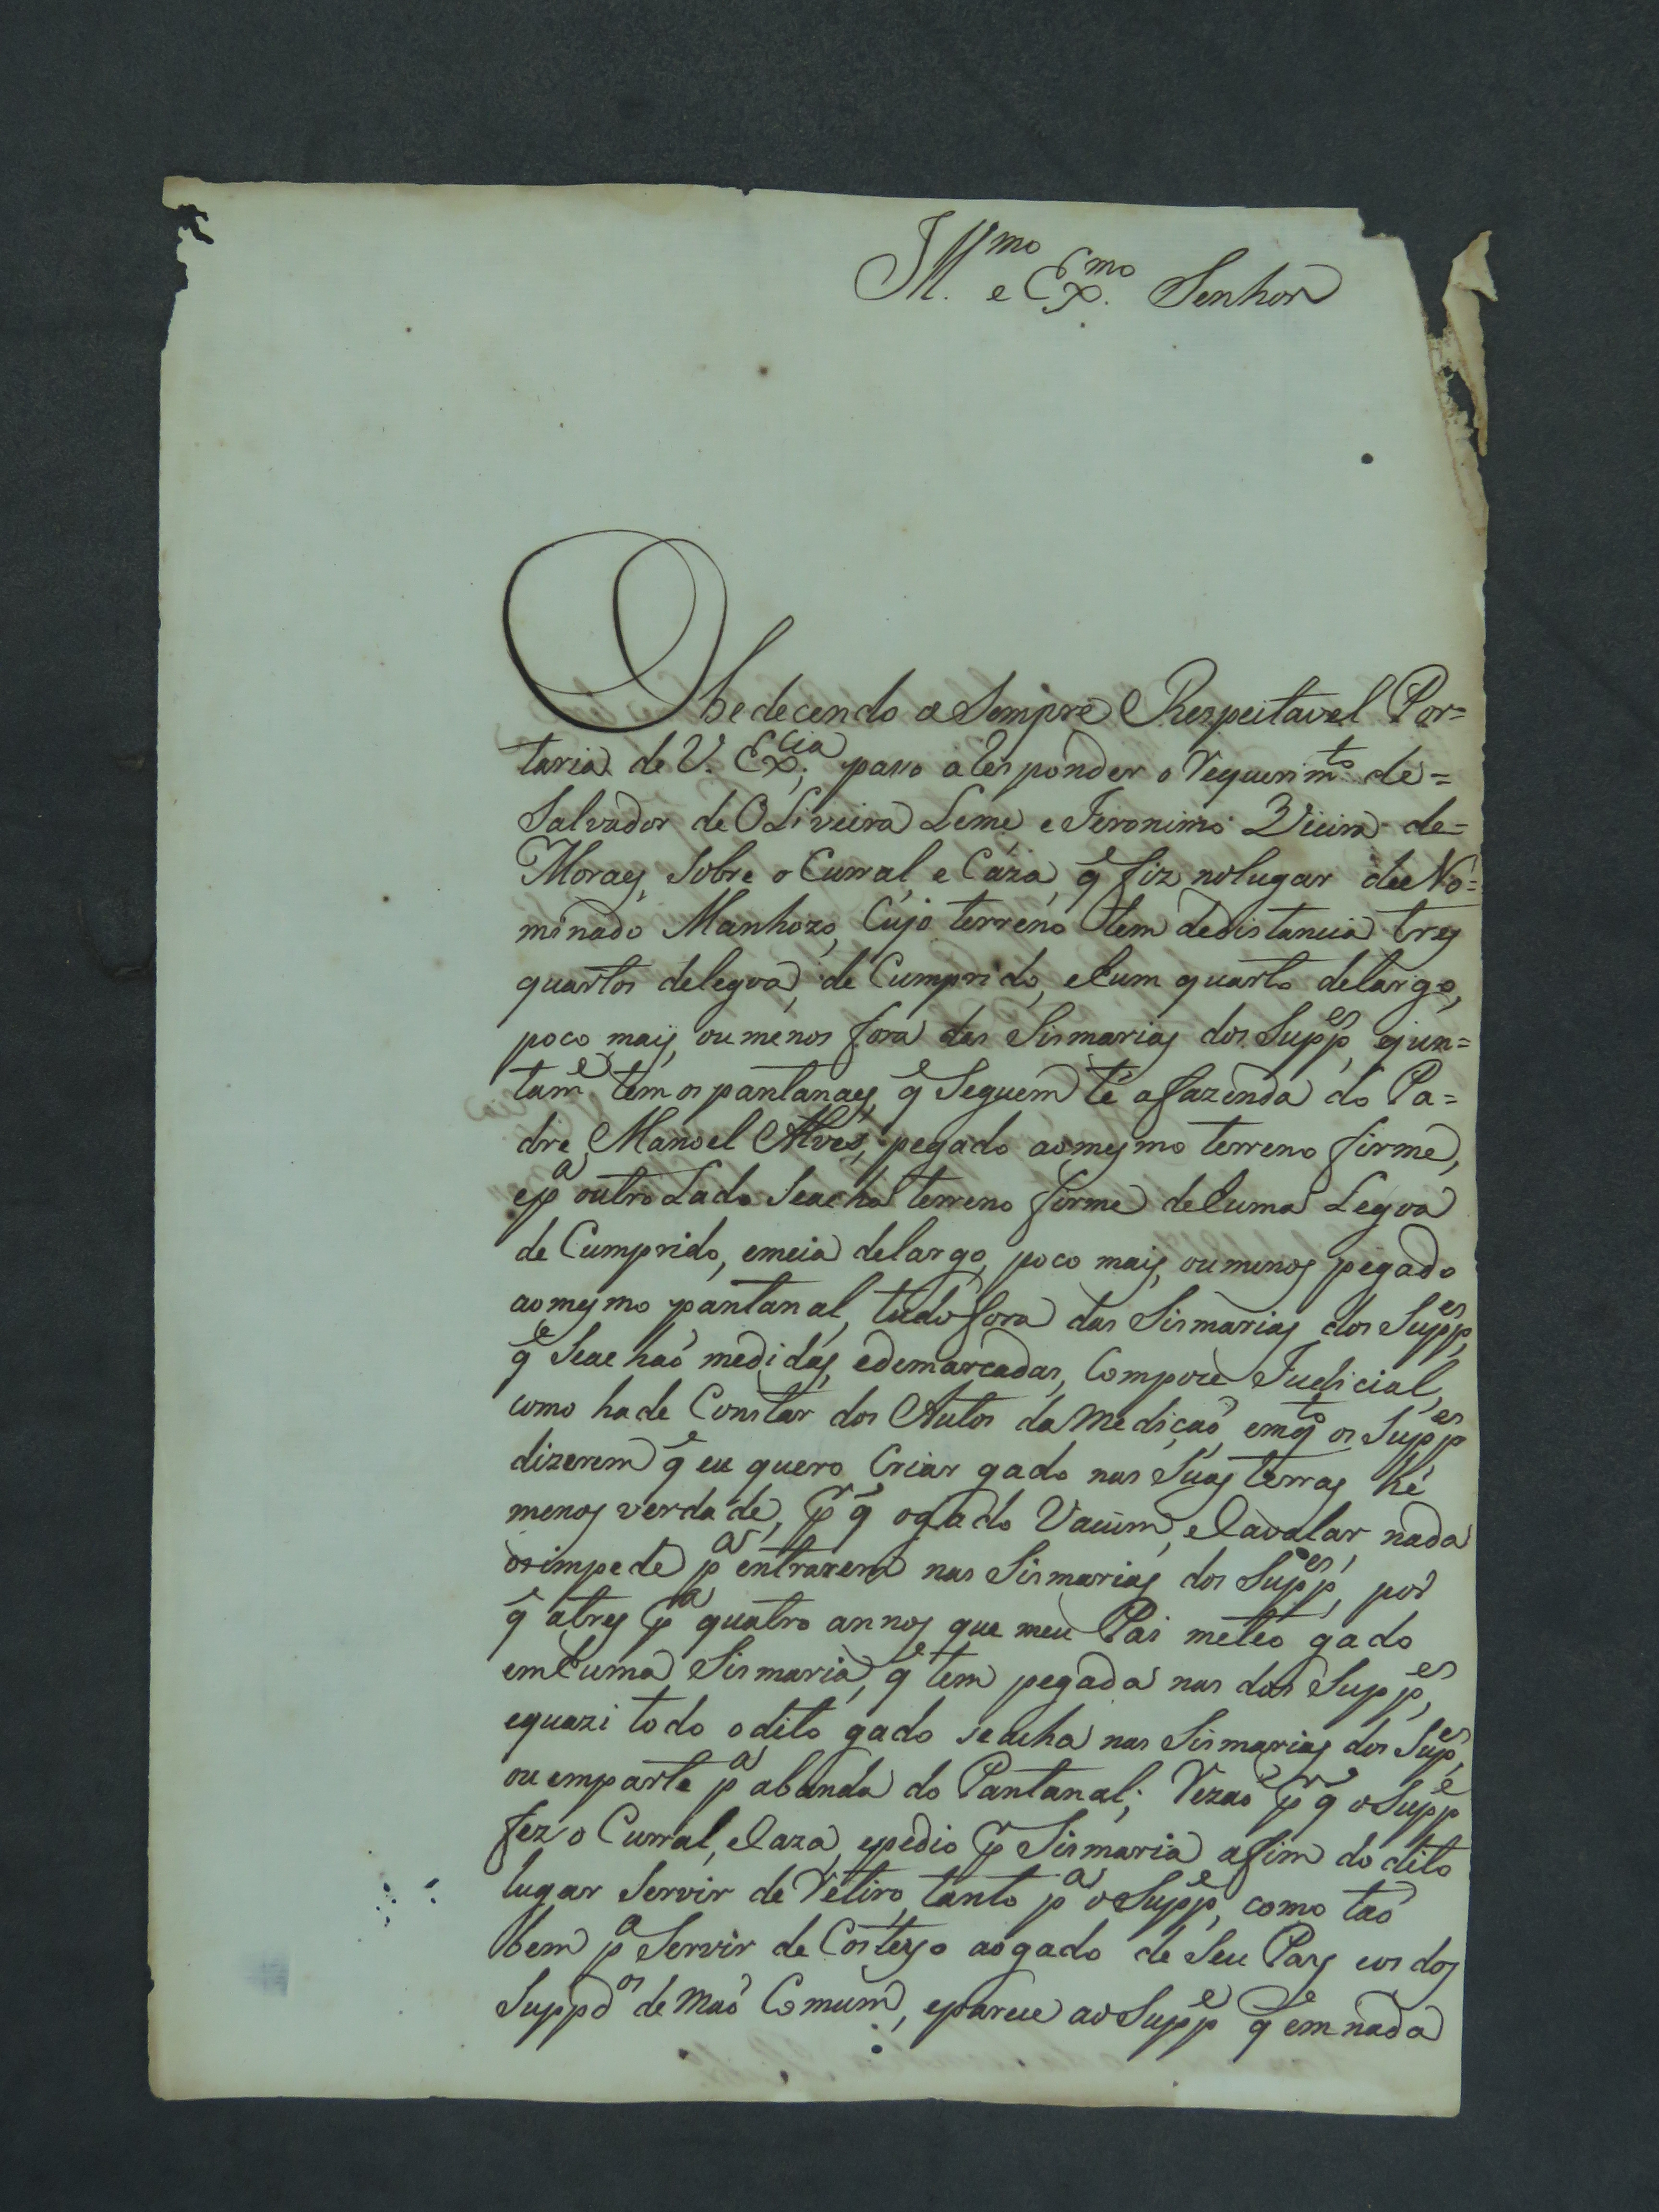 Ill.mo e Ex.mo Senhor
Obedecendo a Sempre Respeitavel Por=
taria de V. Ex.cia, paso a Responder o Requerim.to de=
Salvador de OLiveira Leme e Jeronimo Vieira de=
Moraes, Sobre o Curral, e Caza, q̃ fiz nolugar deeNo=
minado Manhozo, Cujo terreno tem dedistancia tres
quartos delegoa, de Cumprido, ehum quarto delargo,
poco mais, oumenos fora das Sismarias dos Supp.es, ejun=
tam.e tem os pantanaes, q̃ Seguem té afazenda do Pa=
dre Manoel Alves, pegado aomesmo terreno firme,
ep.a outro Lado Seacha terreno firme dehuma Legoa
de Cumprido, emeia delargo, poco mais, oumenos pegado
aomesmo pantanal, tudo fora das Sismarias dos Supp.es,
q̃ Seachaõ medidas, edemarcadas, Composse Judicial,
como hade Constar dos Autos da Mediçaõ, emq.to os Supp.es
dizerem q̃ eu quero Criar gado nas Suas terras hé
menos verdade, p.r q̃ ogado Vacúm, eCavalar nada
osimpede p.a entrarem nas Sismarias dos Supp.es, por
q̃ atres p.a quatro annos que meu Pai meteo gado
emhuma Sismaria, q̃ tem pegada nas dos Supp.es,
equazi todo odito gado seacha nas Sismarias dos Sup.es,
ou emparte p.a abanda do Pantanal; Rezaõ p.r q̃ oSupp.e
fez o Curral, eCaza, epedio p.r Sismaria afim do dito
lugar Servir de Retiro, tanto p.a oSupp.e, como taõ
bem p.a Servir de Costeyo aogado de Seu Pay eos dos
Suppd.os de maõ Comum, eparece ao Supp.e q̃ em nada